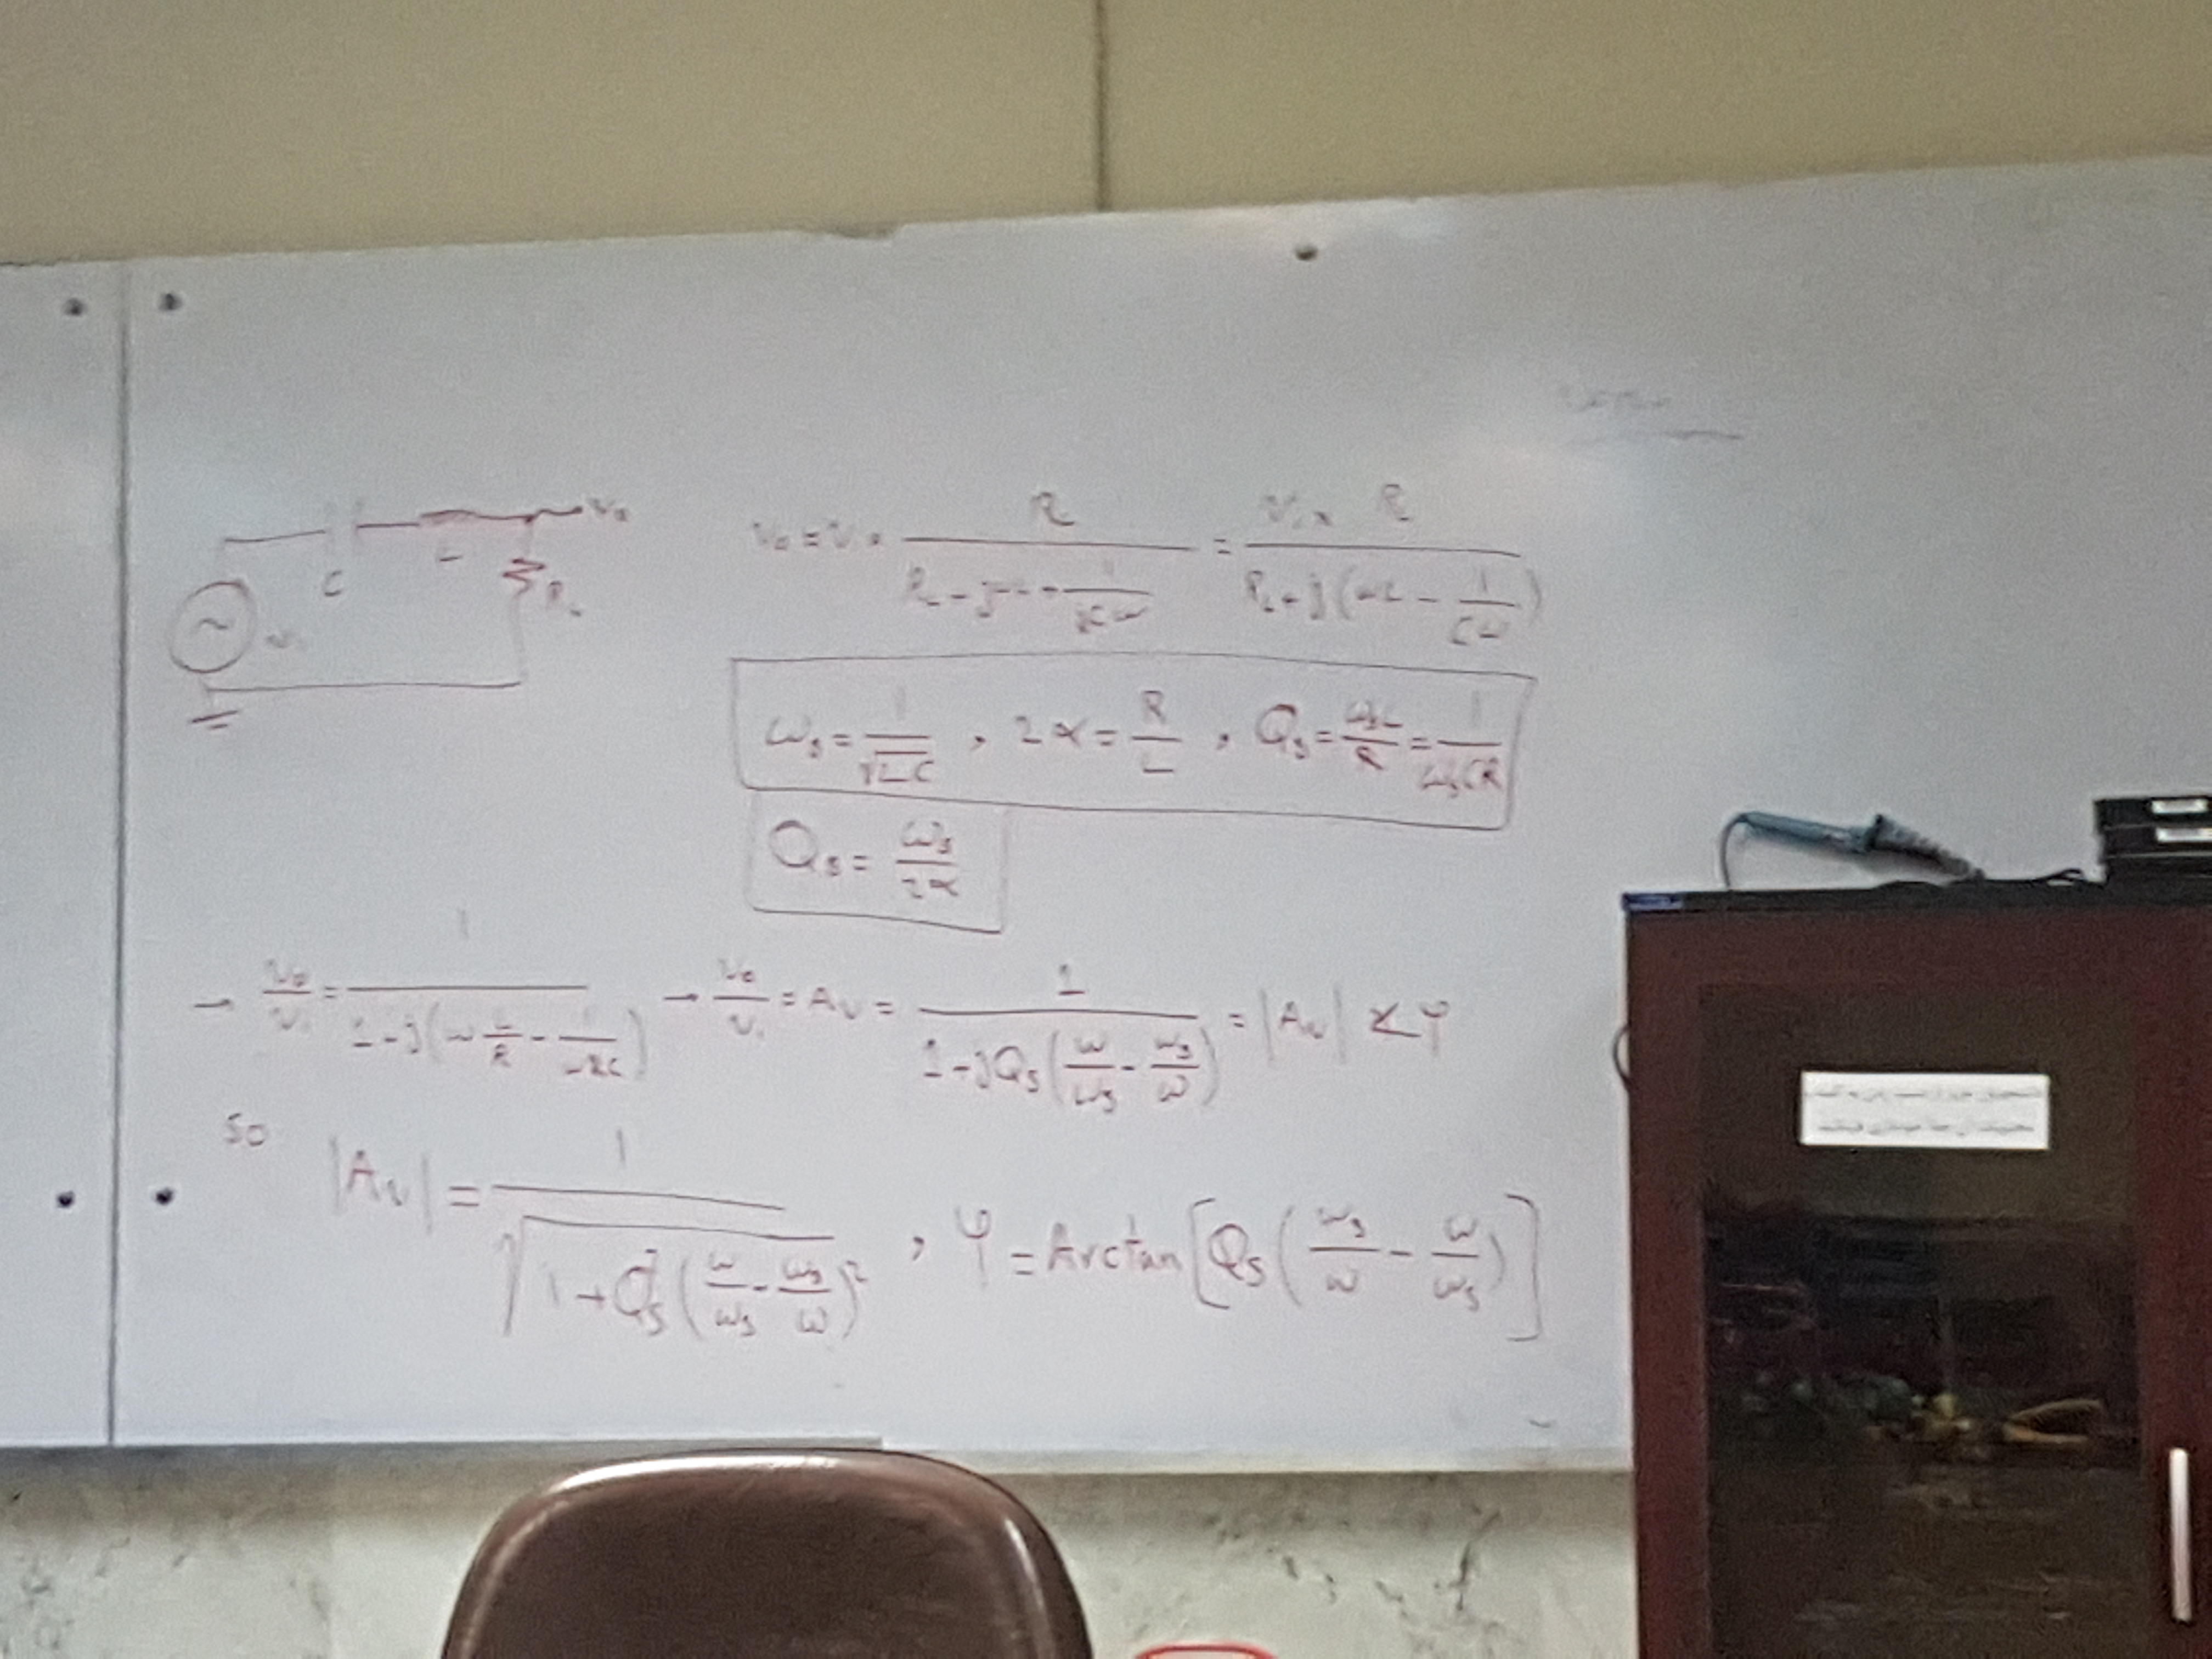 C
L
Vo
RL
Vi
Vo = Vi × R / (RL + jωL + 1/(jCω)) = Vi × R / (RL + j(ωL − 1/(Cω)))
ωs = 1/√LC , 2α = R/L , Qs = ωsL/R = 1/(ωsCR)
Qs = ωs/2α
→ Vo/Vi = 1 / (1 + j(ω L/R − 1/(ωRC))) → Vo/Vi = Av = 1 / (1 + jQs(ω/ωs − ωs/ω)) = |Av| ∡φ
so
|Av| = 1 / √(1 + Qs²(ω/ωs − ωs/ω)²) , φ = Arctan[Qs(ωs/ω − ω/ωs)]